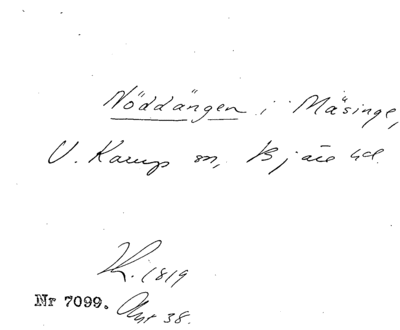 Nöddängen i Mäsinge,
V. Karup sn, Bjäre hd.
K. 1819
Nr 7099. Akt 38.